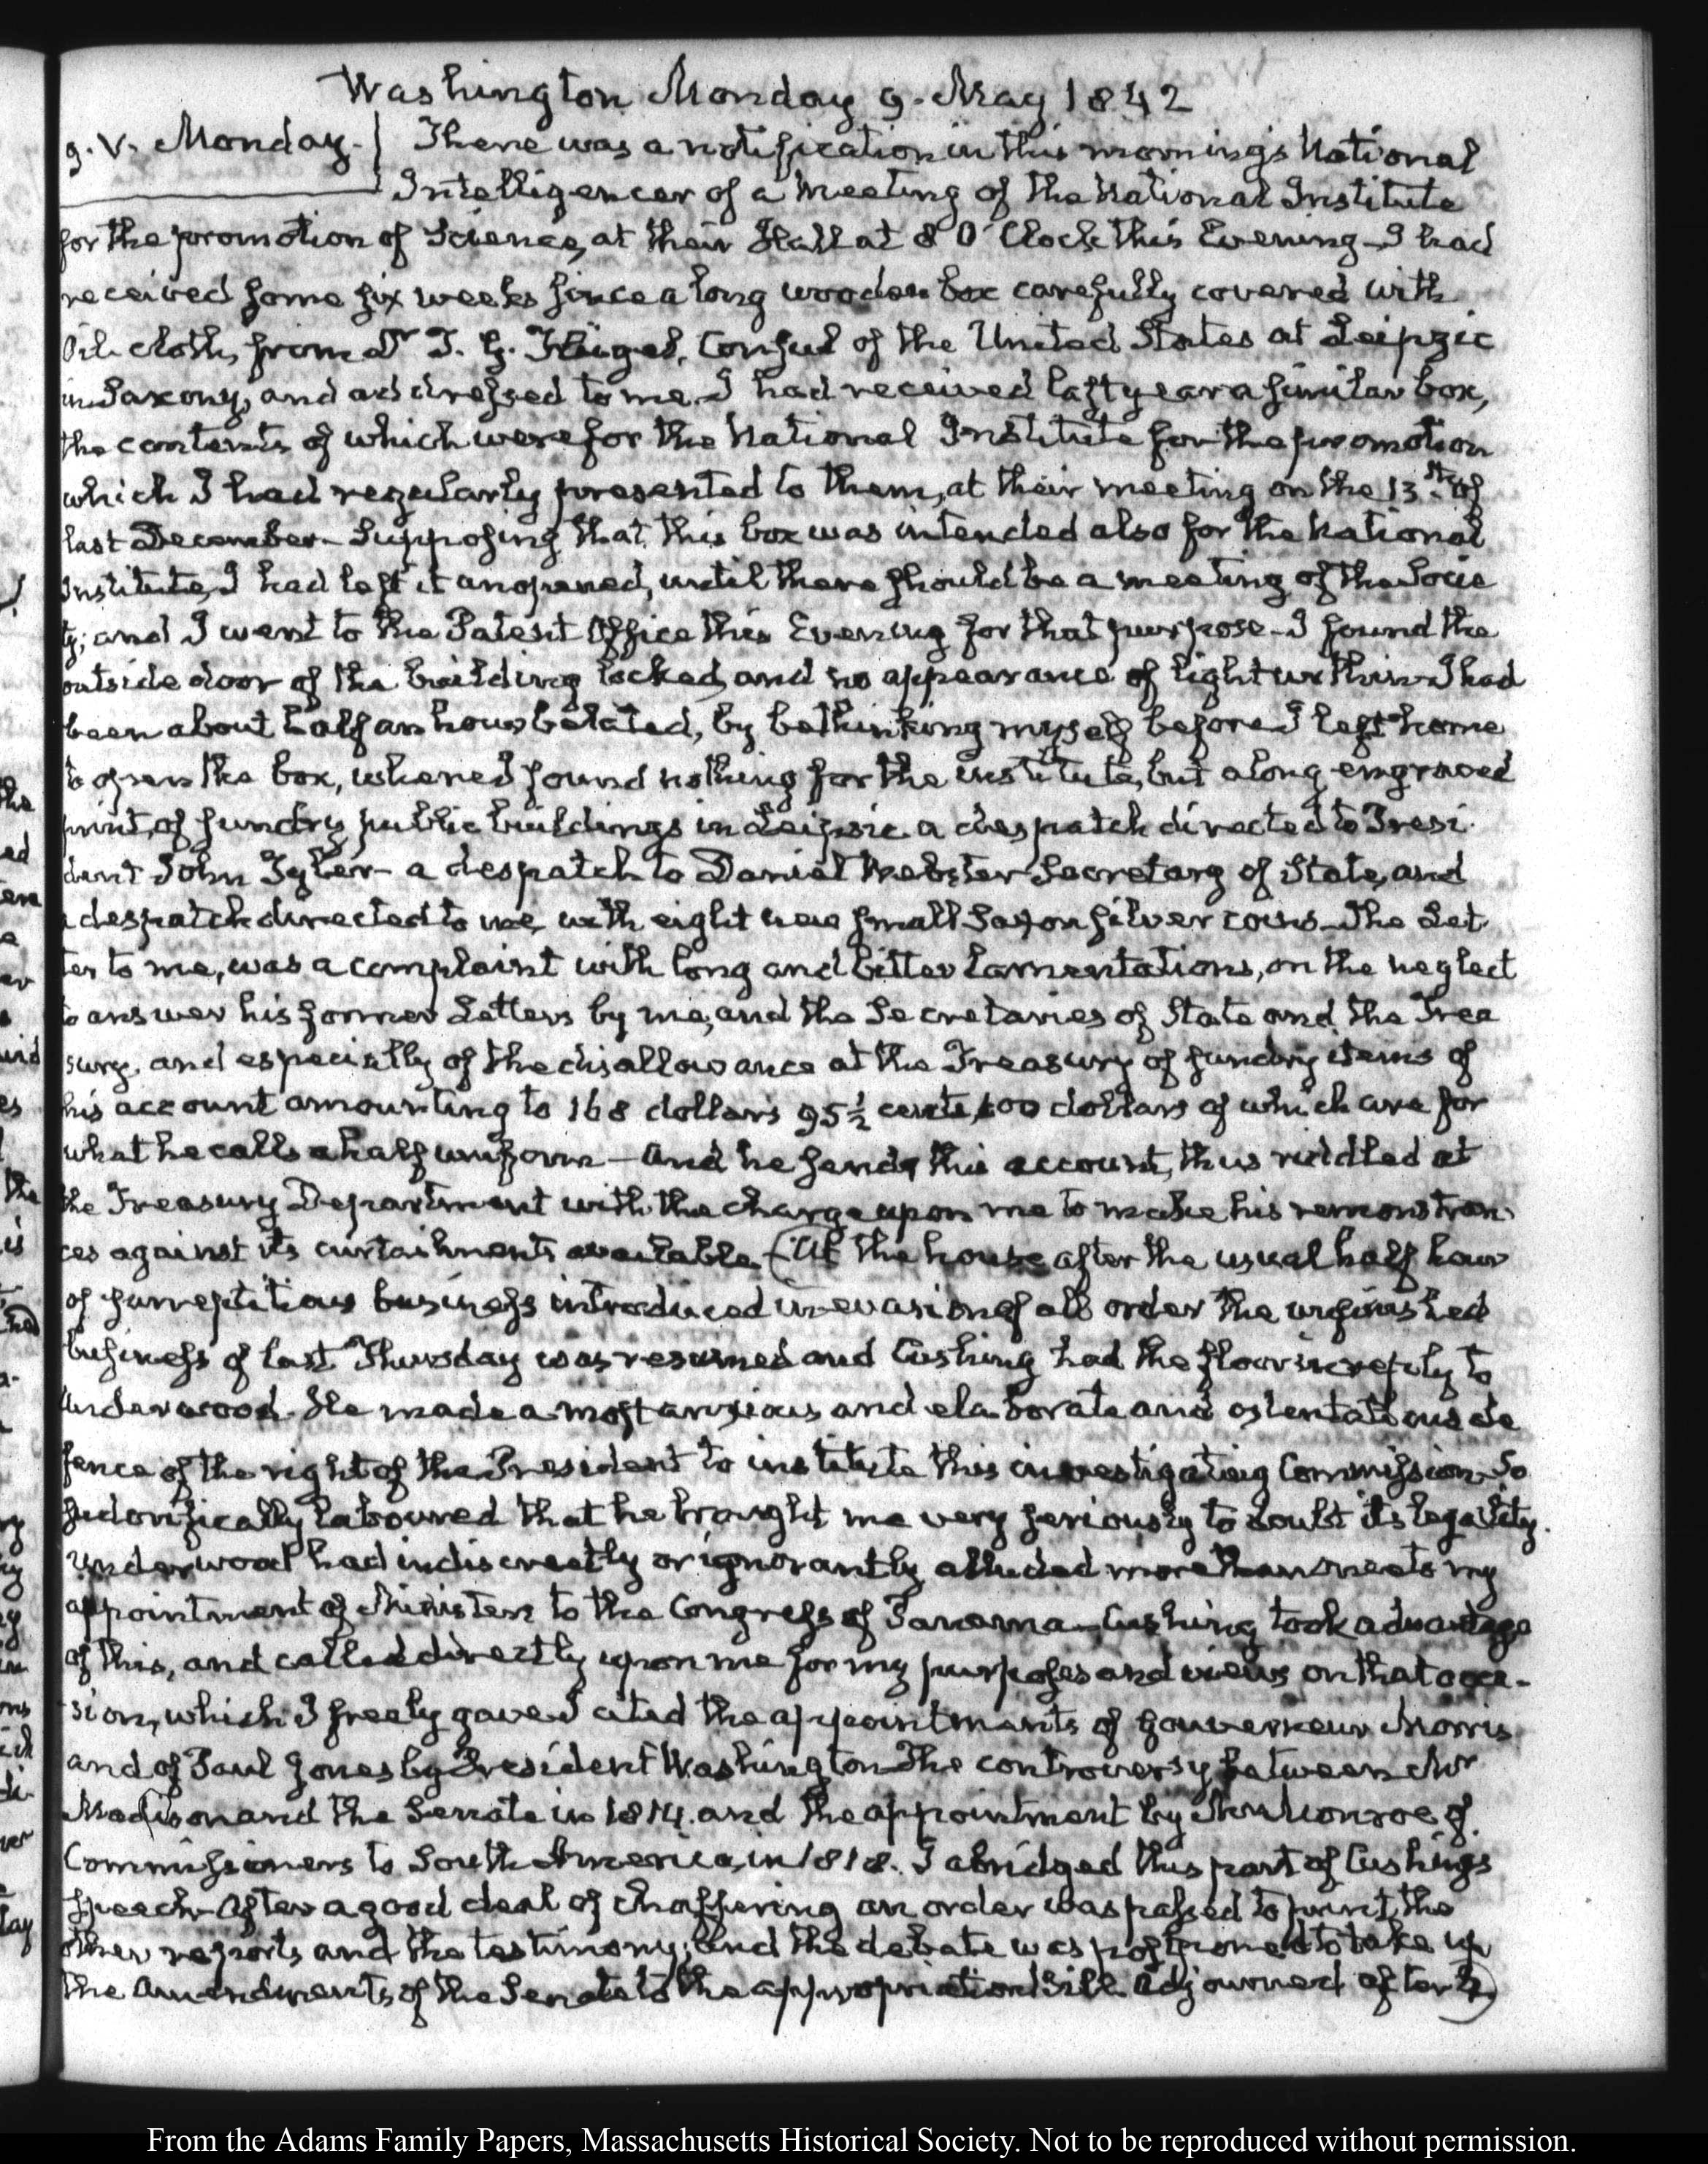 Washington Monday 9. May 1842
9. V. Monday. There was a notification in this morning's National
Intelligencer of a Meeting of the National Institute
for the promotion of Science, at their Hall at 8 O'Clock this Evening - I had
received some six weeks since a long wooden box carefully covered with
Oil-cloth, from Dr J. G. Flügel, Consul of the United States at Leipzic
in Saxony, and addressed to me. I had received last year a similar box,
the contents of which were for the National Institute for the promotion
which I had regularly presented to them, at their meeting on the 13th. of
last December - Supposing that this box was intended also for the National
Institute, I had left it unopened, until there should be a meeting of the Socie
ty; and I went to the Patent Office this Evening for that purpose - I found the
outside door of the building locked, and no appearance of light within - I had
been about half an hour belated, by bethinking myself before I left home
to open the box, where I found nothing for the institute, but a long engraved
print, of sundry public buildings in Leipsic a despatch directed to Presi-
dent John Tyler - a despatch to Daniel Webster Secretary of State, and
a despatch directed to me, with eight new small Saxon silver coins - The Let
ter to me, was a complaint with long and bitter lamentations, on the neglect
to answer his former Letters by me, and the Secretaries of State and the Trea
sury, and especially of the disallowance at the Treasury of sundry items of
his account amounting to 168 dollars 95½ cents, 100 dollars of which are for
what he calls a half uniform - And he sends this account, thus riddled at
the Treasury Department with the charge upon me to make his remonstran-
ces against its curtailments available. (At the house after the usual half hour
of surreptitious business introduced in evasion of all order the unfinished
business of last Thursday was resumed and Cushing had the floor in reply to
Underwood. He made a most anxious and elaborate and ostentatious de
fence of the right of the President to institute this investigating Commission - So
sudorifically laboured that he brought me very seriously to doubt its legality.
Underwood had indiscreetly or ignorantly alluded more than once to my
appointment of Ministers to the Congress of Panama - Cushing took advantage
of this, and called directly upon me for my purposes and views on that occa-
sion, which I freely gave. I cited the appointments of Gouverneur Morris
and of Paul Jones by President Washington - The controversy between Mr
Madison and the Senate in 1814. and the appointment by Mr Monroe of
Commissioners to South America, in 1818. I abridged this part of Cushing's
speech - After a good deal of chaffering an order was passed to print the
other reports and the testimony; and the debate was postponed to take up
the Amendments of the Senate to the appropriation bill. Adjourned after 4)
From the Adams Family Papers, Massachusetts Historical Society. Not to be reproduced without permission.